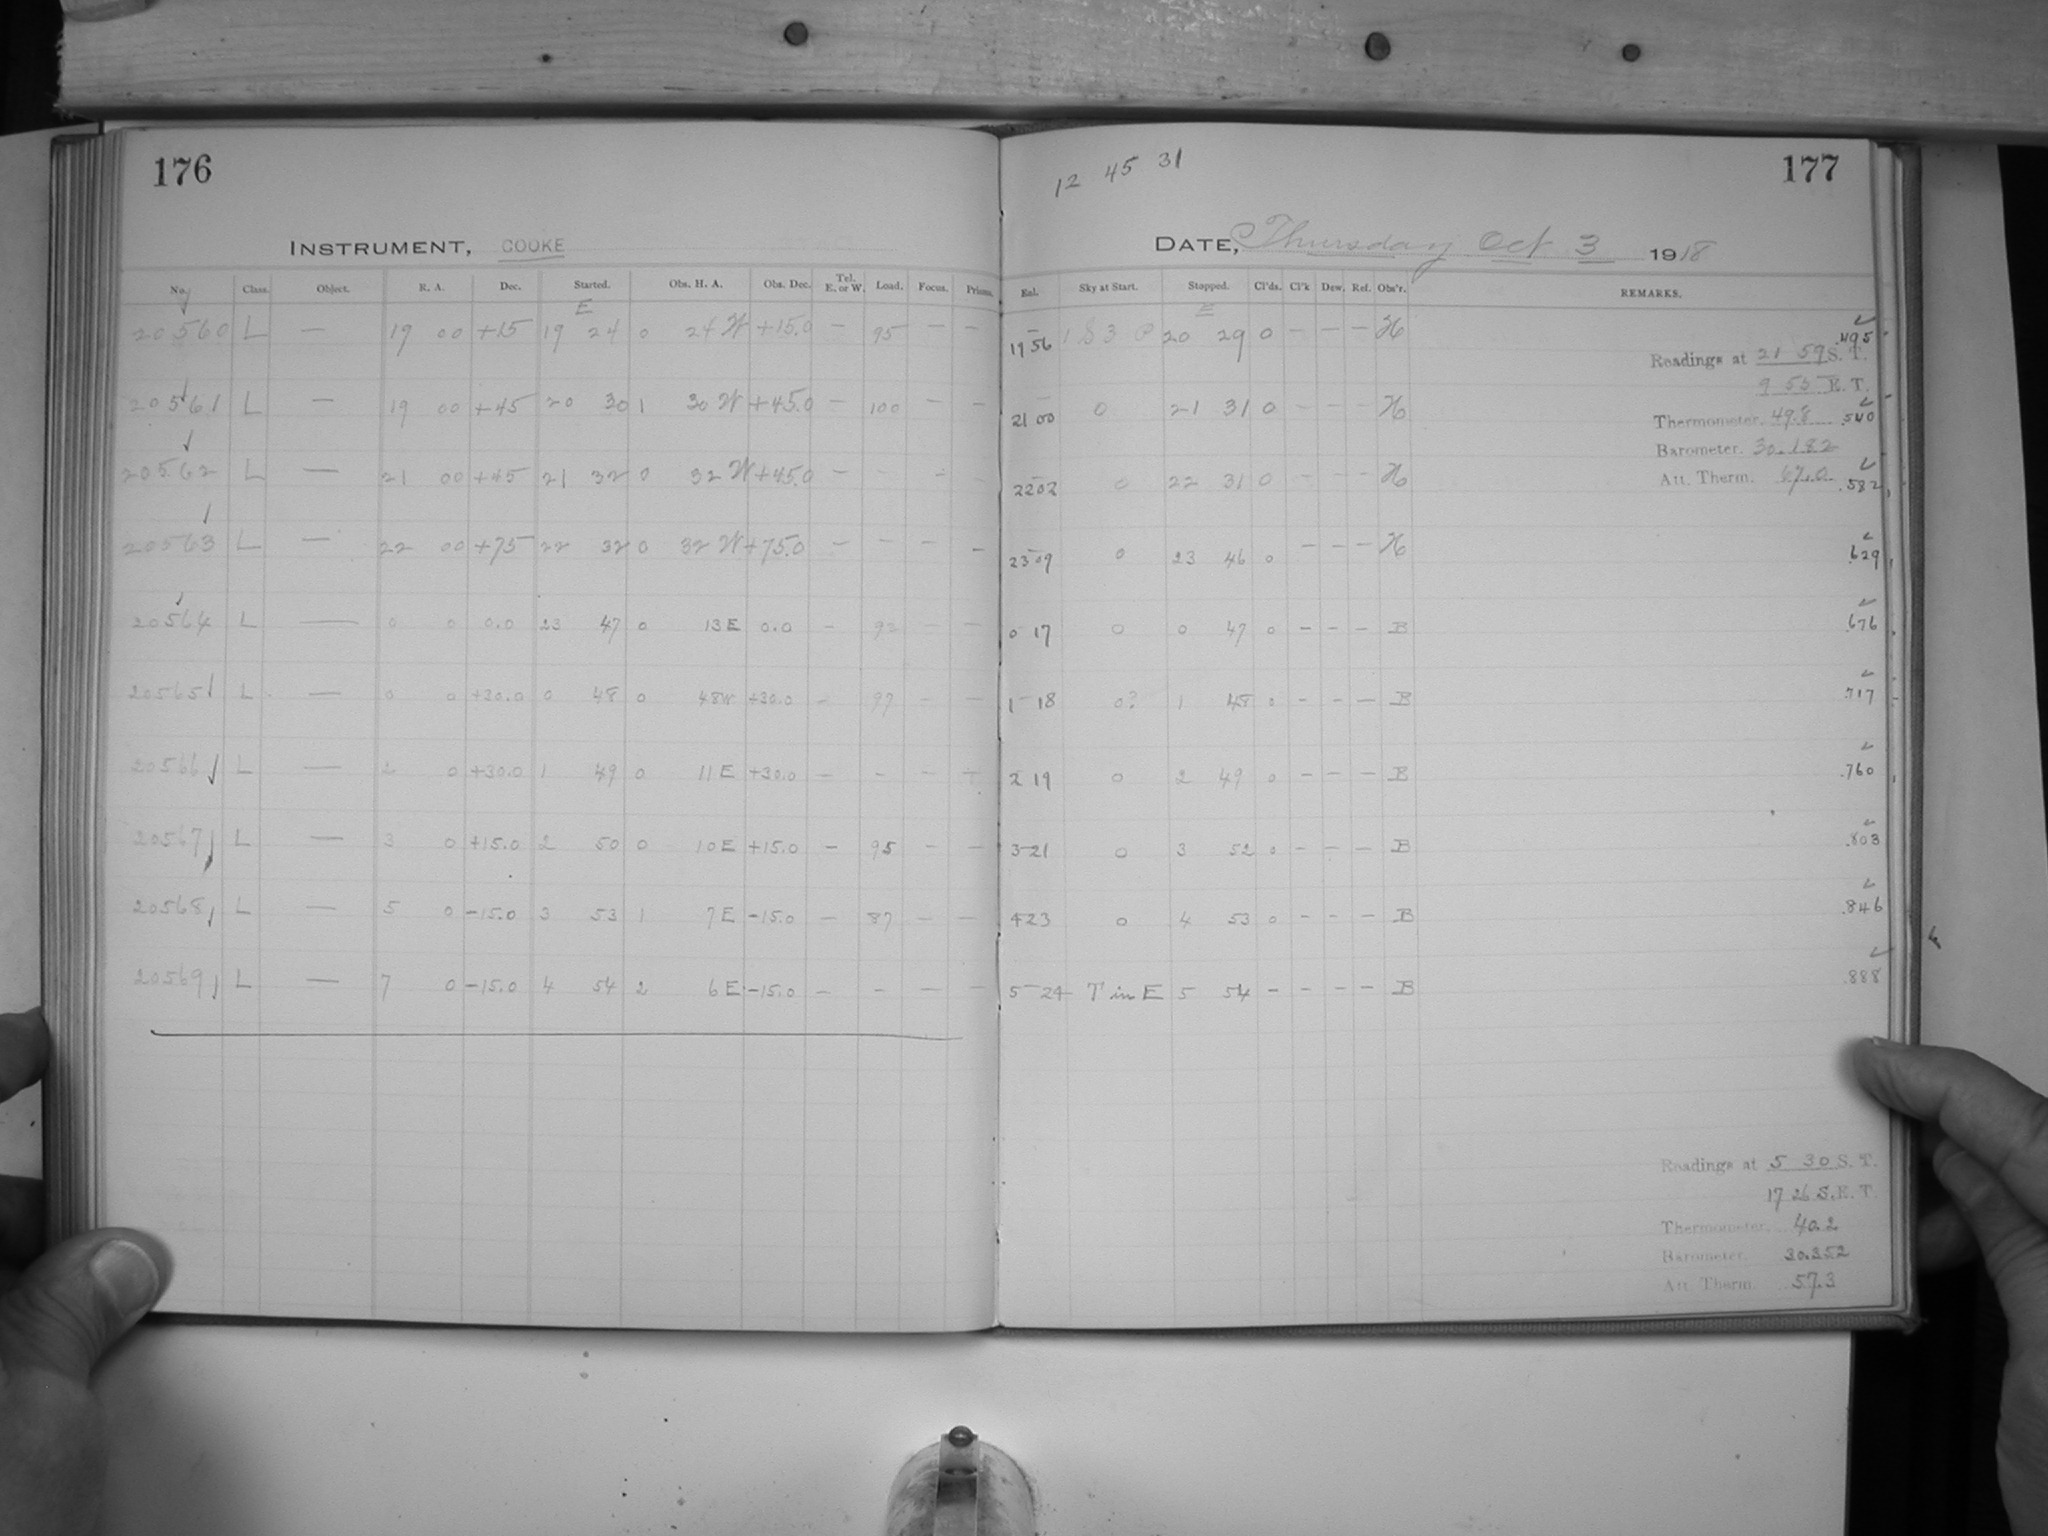 176
INSTRUMENT, COOKE
No. Class. Object. R. A. Dec. Started. Obs. H. A. Obs. Dec. Tel. E. or W. Load. Focus. Prisms.
E
20560 L — 19 00 +15 19 24 0 24 W +15.0 — 95 — —
20561 L — 19 00 +45 20 30 1 30 W +45.0 — 100 — —
20562 L — 21 00 +45 21 32 0 32 W +45.0 — — — —
20563 L — 22 00 +75 22 32 0 32 W +75.0 — — — —
20564 L — 0 0 0.0 23 47 0 13 E 0.0 — 92 — —
20565 L — 0 0 +30.0 0 48 0 48 W +30.0 — 97 — —
20566 L — 2 0 +30.0 1 49 0 11 E +30.0 — — — —
20567 L — 3 0 +15.0 2 50 0 10 E +15.0 — 95 — —
20568 L — 5 0 -15.0 3 53 1 7 E -15.0 — 87 — —
20569 L — 7 0 -15.0 4 54 2 6 E -15.0 — — — —
12 45 31
177
DATE, Thursday Oct 3 1918
Enl. Sky at Start. Stopped. Cl'ds. Cl'k Dew. Ref. Obs'r. REMARKS.
E
19 56 1 S 3 P 20 29 0 — — — H .495
Readings at 21 59 S. T.
9 55 E. T.
21 00 0 21 31 0 — — — H
Thermometer. 49.8 .540
Barometer. 30.182
22 02 0 22 31 0 — — — H
Att. Therm. 67.0 .582
23 09 0 23 46 0 — — — H .629
0 17 0 0 47 0 — — — B .676
1 18 0? 1 48 0 — — — B .717
2 19 0 2 49 0 — — — B .760
3 21 0 3 52 0 — — — B .803
4 23 0 4 53 0 — — — B .846
5 24 T in E 5 54 — — — — B .888
Readings at 5 30 S. T.
17 26 S. E. T.
Thermometer. 40.2
Barometer. 30.352
Att. Therm. 57.3